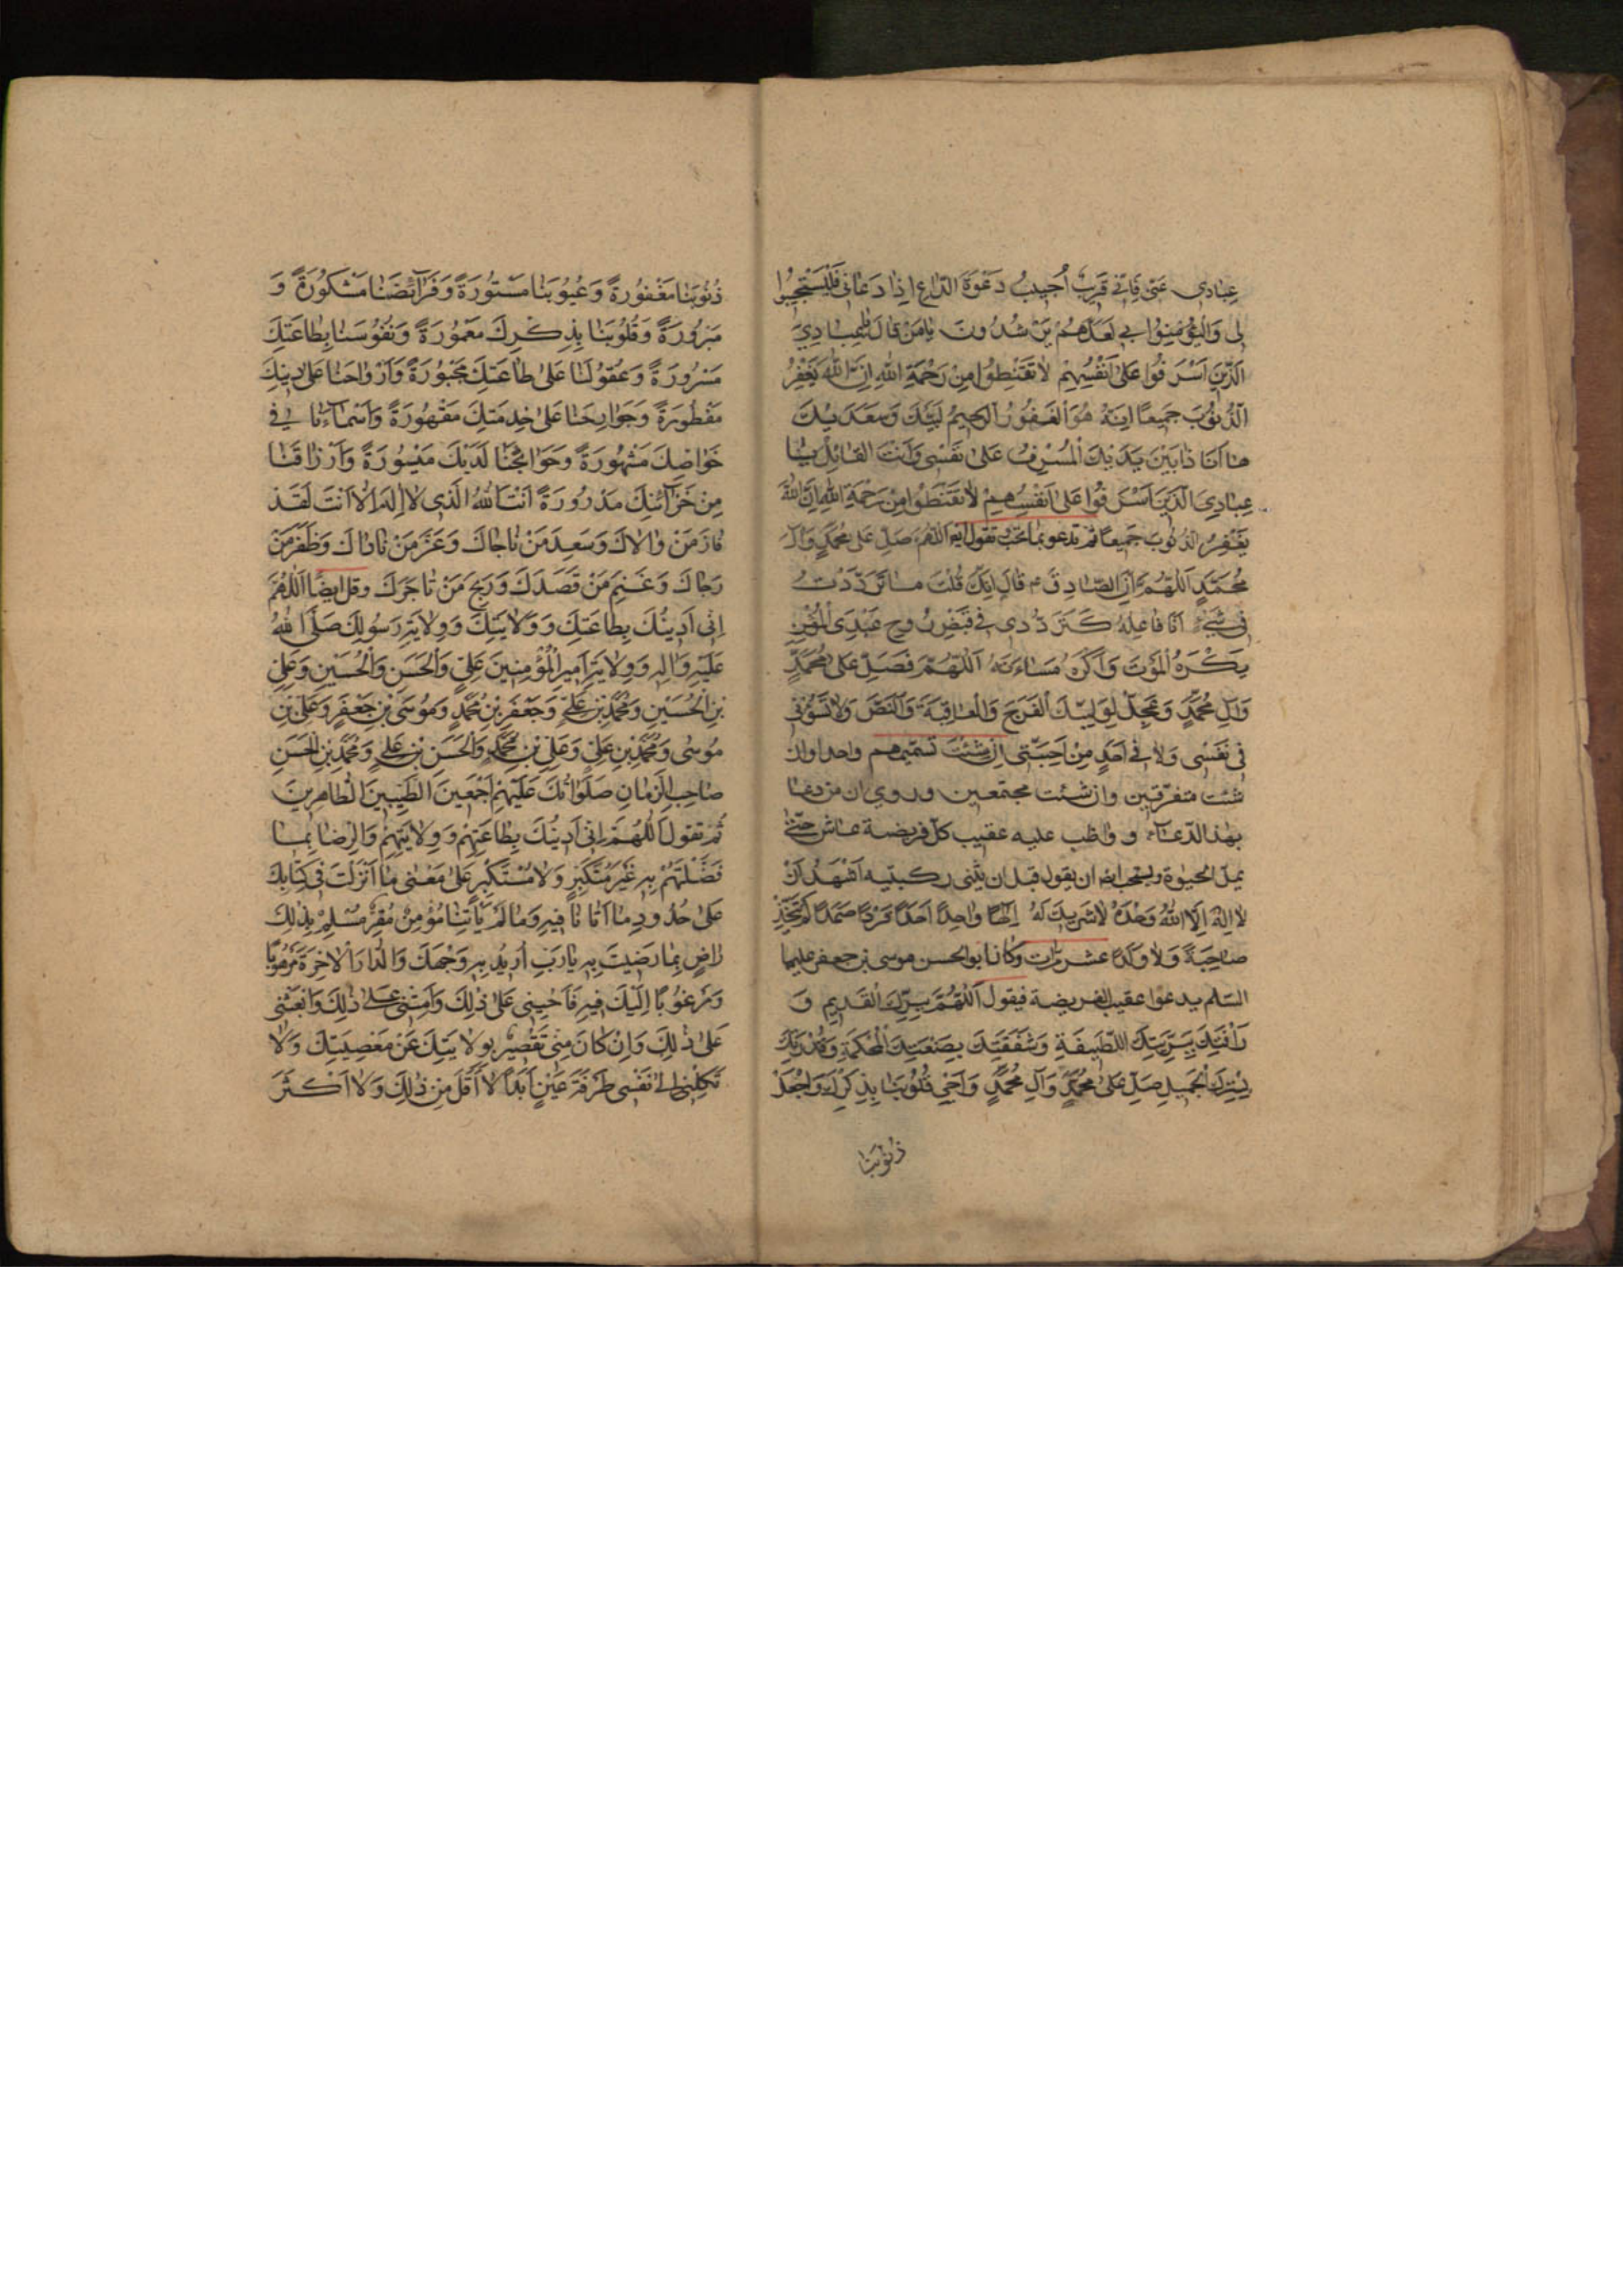 عِبَادِى عَنّى فَاِنّى قَرِيبٌ اُجِيبُ دَعْوَةَ الدّٰاعِ اِذَا دَعَانِ فَلْيَسْتَجِيبُوا
لِى وَلْيُؤْمِنُوا بِى لَعَلَّهُمْ يَرْشُدُونَ يَامَنْ قَالَ يَا عِبَادِىَ
الَّذِينَ اَسْرَفُوا عَلىٰ اَنْفُسِهِمْ لاٰ تَقْنَطُوا مِنْ رَحْمَةِ اللهِ اِنَّ اللهَ يَغْفِرُ
الذُّنُوبَ جَمِيعًا اِنَّهُ هُوَ الْغَفُورُ الرَّحِيمُ لَبَّيْكَ وَسَعْدَيْكَ
هٰا اَنَا ذٰا بَيْنَ يَدَيْكَ الْمُسْرِفُ عَلىٰ نَفْسِى وَاَنْتَ الْقَائِلُ يٰا
عِبٰادِىَ الَّذِينَ اَسْرَفُوا عَلىٰ اَنْفُسِهِمْ لاٰ تَقْنَطُوا مِنْ رَحْمَةِ اللهِ اِنَّ اللهَ
يَغْفِرُ الذُّنُوبَ جَمِيعًا ثم تدعو بما تحب تقول اللّٰهُمَّ صَلِّ عَلىٰ مُحَمَّدٍ وَآلِ
مُحَمَّدٍ اَللّٰهُمَّ اِنَّ الصّٰادِقَ ع قَالَ اِنَّكَ قُلْتَ مٰا تَرَدَّدْتُ
فِى شَىْءٍ اَنَا فَاعِلُهُ كَتَرَدُّدِى فِى قَبْضِ رُوحِ عَبْدِىَ الْمُؤْمِنِ
يَكْرَهُ الْمَوْتَ وَاَكْرَهُ مَسَاءَتَهُ اَللّٰهُمَّ فَصَلِّ عَلىٰ مُحَمَّدٍ
وَآلِ مُحَمَّدٍ وَعَجِّلْ لِوَلِيِّكَ الْفَرَجَ وَالْعٰافِيَةَ وَالنَّصْرَ وَلاٰ تَسُؤْنِى
فِى نَفْسِى وَلاٰ فِى اَحَدٍ مِنْ اَحِبَّتِى اِنْ شِئْتَ تسمّيهم واحدا وان
شئت متفرّقين وان شئت مجتمعين وروى ان من دعا
بهذا الدّعاء وواظب عليه عقيب كلّ فريضة عاش حتّى
يملّ الحيوة ويستحب ايضا ان يقول قبل ان يثنى ركبتيه اَشْهَدُ اَنْ
لاٰ اِلٰهَ اِلَّا اللهُ وَحْدَهُ لاٰ شَرِيكَ لَهُ اِلٰهًا وٰاحِدًا اَحَدًا فَرْدًا صَمَدًا لَمْ يَتَّخِذْ
صٰاحِبَةً وَلاٰ وَلَدًا عشر مرّات وكان ابو الحسن موسى بن جعفر عليهما
السّلم يدعوا عقيب الفريضة فيقول اَللّٰهُمَّ بِبِرِّكَ الْقَدِيمِ وَ
رَاْفَتِكَ بِبَرِيَّتِكَ اللَّطِيفَةِ وَشَفَقَتِكَ بِصَنْعَتِكَ الْمُحْكَمَةِ وَقُدْرَتِكَ
بِسَتْرِكَ الْجَمِيلِ صَلِّ عَلىٰ مُحَمَّدٍ وَآلِ مُحَمَّدٍ وَاَحْىِ قُلُوبَنَا بِذِكْرِكَ وَاجْعَلْ
ذُنُوبَنَا
ذُنُوبَنَا مَغْفُورَةً وَعُيُوبَنَا مَسْتُورَةً وَفَرَآئِضَنَا مَشْكُورَةً وَ
مَبْرُورَةً وَقُلُوبَنَا بِذِكْرِكَ مَعْمُورَةً وَنُفُوسَنَا بِطَاعَتِكَ
مَسْرُورَةً وَعُقُولَنَا عَلىٰ طَاعَتِكَ مَجْبُورَةً وَاَرْوَاحَنَا عَلىٰ دِينِكَ
مَفْطُورَةً وَجَوَارِحَنَا عَلىٰ خِدْمَتِكَ مَقْهُورَةً وَاَسْمَآءَنَا فِى
خَوَاصِكَ مَشْهُورَةً وَحَوَائِجَنَا لَدَيْكَ مَيْسُورَةً وَاَرْزَاقَنَا
مِنْ خَزَآئِنِكَ مَدْرُورَةً اَنْتَ اللهُ الَّذِى لاٰ اِلٰهَ اِلاَّ اَنْتَ لَقَدْ
فَازَ مَنْ وَالاٰكَ وَسَعِدَ مَنْ نَاجَاكَ وَعَزَّ مَنْ نَادَاكَ وَظَفِرَ مَنْ
رَجَاكَ وَغَنِمَ مَنْ قَصَدَكَ وَرَبِحَ مَنْ تَاجَرَكَ وقل ايضًا اَللّٰهُمَّ
اِنِّى اَدِينُكَ بِطَاعَتِكَ وَوَلاٰيَتِكَ وَوِلاٰيَةِ رَسُولِكَ صَلَّى اللهُ
عَلَيْهِ وَاٰلِهِ وَوِلاٰيَةِ اَمِيرِ الْمُؤْمِنِينَ عَلِىٍّ وَالْحَسَنِ وَالْحُسَيْنِ وَعَلِىِّ
بْنِ الْحُسَيْنِ وَمُحَمَّدِ بْنِ عَلِىٍّ وَجَعْفَرِ بْنِ مُحَمَّدٍ وَمُوسَى بْنِ جَعْفَرٍ وَعَلِىِّ بْنِ
مُوسٰى وَمُحَمَّدِ بْنِ عَلِىٍّ وَعَلِىِّ بْنِ مُحَمَّدٍ وَالْحَسَنِ بْنِ عَلِىٍّ وَمُحَمَّدِ بْنِ الْحَسَنِ
صَاحِبِ الزَّمَانِ صَلَوَاتُكَ عَلَيْهِمْ اَجْمَعِينَ الطَّيِّبِينَ الطَّاهِرِينَ
ثُمَّ تقول اَللّٰهُمَّ اِنِّى اَدِينُكَ بِطَاعَتِهِمْ وَوِلاٰيَتِهِمْ وَالرِّضَا بِمَا
فَضَّلْتَهُمْ بِهِ غَيْرَ مُتَكَبِّرٍ وَلاٰ مُسْتَكْبِرٍ عَلىٰ مَعْنٰى مَا اَنْزَلْتَ فِى كِتَابِكَ
عَلىٰ حُدُودِ مَا اَتَانَا فِيهِ وَمَا لَمْ يَأْتِنَا مُؤْمِنٌ مُقِرٌّ مُسَلِّمٌ بِذٰلِكَ
رَاضٍ بِمَا رَضِيتَ بِهِ يَارَبِّ اُرِيدُ بِهِ وَجْهَكَ وَالدَّارَ الْاٰخِرَةَ مَرْهُوبًا
وَمَرْغُوبًا اِلَيْكَ فِيهِ فَاَحْيِنِى عَلىٰ ذٰلِكَ وَاَمِتْنِى عَلىٰ ذٰلِكَ وَابْعَثْنِى
عَلىٰ ذٰلِكَ وَاِنْ كَانَ مِنِّى تَقْصِيرٌ بِوِلاٰيَتِكَ عَنْ مَعْصِيَتِكَ وَلاٰ
تَكِلْنِى اِلىٰ نَفْسِى طَرْفَةَ عَيْنٍ اَبَدًا لاٰ اَقَلَّ مِنْ ذٰلِكَ وَلاٰ اَكْثَرَ